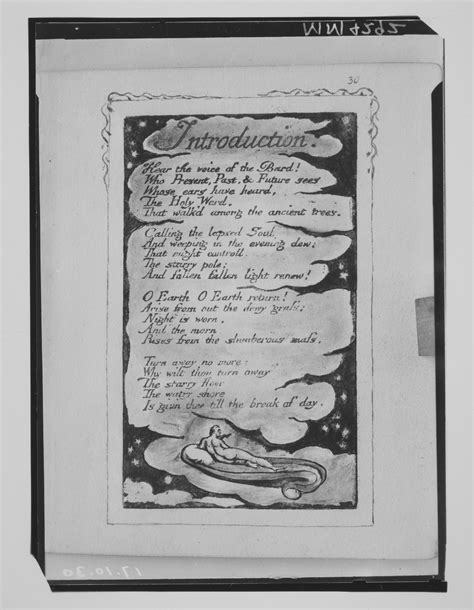 MM4292
30
Introduction.
Hear the voice of the Bard!
Who Present, Past, & Future sees
Whose ears have heard,
The Holy Word,
That walk'd among the ancient trees.
Calling the lapsed Soul
And weeping in the evening dew:
That might controll.
The starry pole;
And fallen fallen light renew!
O Earth O Earth return!
Arise from out the dewy grass;
Night is worn,
And the morn
Rises from the slumberous mass.
Turn away no more:
Why wilt thou turn away
The starry floor
The watry shore
Is giv'n thee till the break of day.
17.10.30